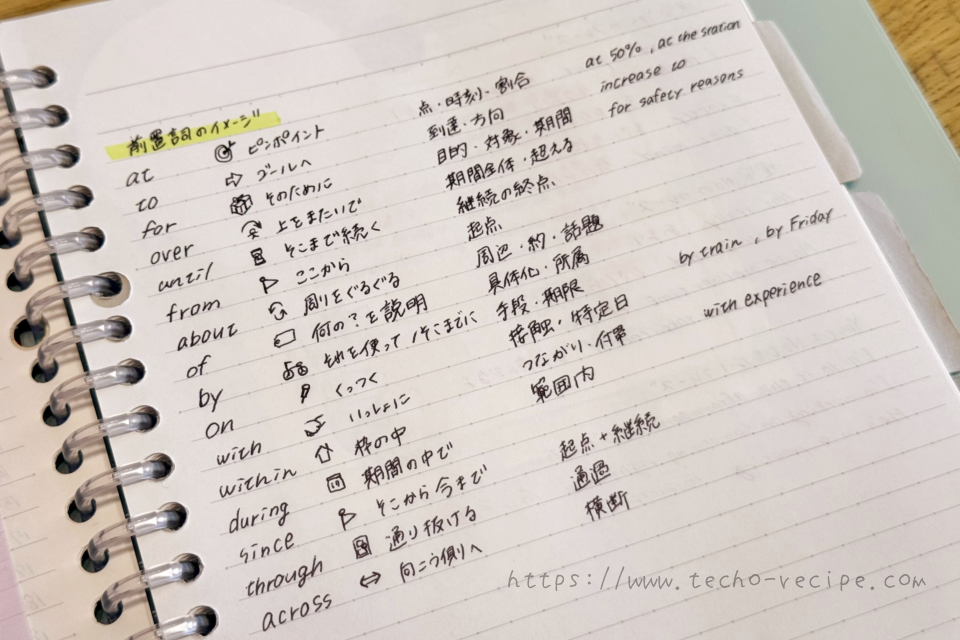 前置詞のイメージ
at ピンポイント 点・時刻・割合 at 50%, at the station
to ゴールへ 到達・方向 increase to
for そのために 目的・対象・期間 for safety reasons
over 上をまたいで 期間全体・超える
until そこまで続く 継続の終点
from ここから 起点
about 周りをぐるぐる 周辺・約・話題
of 何の?を説明 具体化・所属
by それを使って/そこまでに 手段・期限 by train, by Friday
on くっつく 接触・特定日
with いっしょに つながり・付帯 with experience
within 枠の中 範囲内
during 期間の中で
since そこから今まで 起点+継続
through 通り抜ける 通過
across 向こう側へ 横断
https://www.techo-vecipe.com